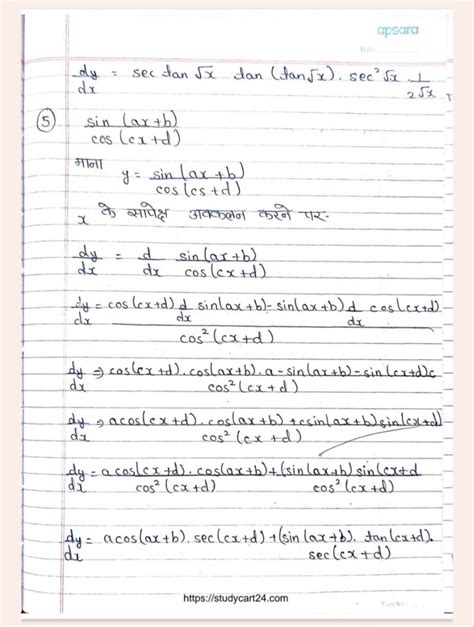 apsara
dy/dx = sec tan √x tan (tan √x). sec² √x 1/2√x
⑤ sin (ax+b)/cos (cx+d)
माना y = sin (ax+b)/cos (cs+d)
x के सापेक्ष अवकलन करने पर:-
dy/dx = d/dx sin(ax+b)/cos(cx+d)
dy/dx = cos(cx+d) d/dx sin(ax+b) - sin(ax+b) d/dx cos(cx+d)/cos² (cx+d)
dy/dx ⇒ cos(cx+d). cos(ax+b). a - sin(ax+b) - sin (cx+d)c/cos² (cx+d)
dy/dx ⇒ acos(cx+d). cos(ax+b) + csin(ax+b) sin(cx+d)/cos² (cx+d)
dy/dx = a cos(cx+d). cos(ax+b)/cos² (cx+d) + (sin (ax+b) sin(cx+d/cos² (cx+d)
dy/dx = acos(ax+b). sec(cx+d) + (sin (ax+b). tan(cx+d). sec(cx+d)
https://studycart24.com